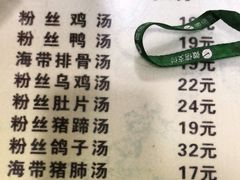 粉丝鸡汤 18元
粉丝鸭汤 19元
海带排骨汤
粉丝乌鸡汤 22元
粉丝肚片汤 24元
粉丝猪蹄汤 19元
粉丝鸽子汤 32元
海带猪肺汤 17元
微信支付